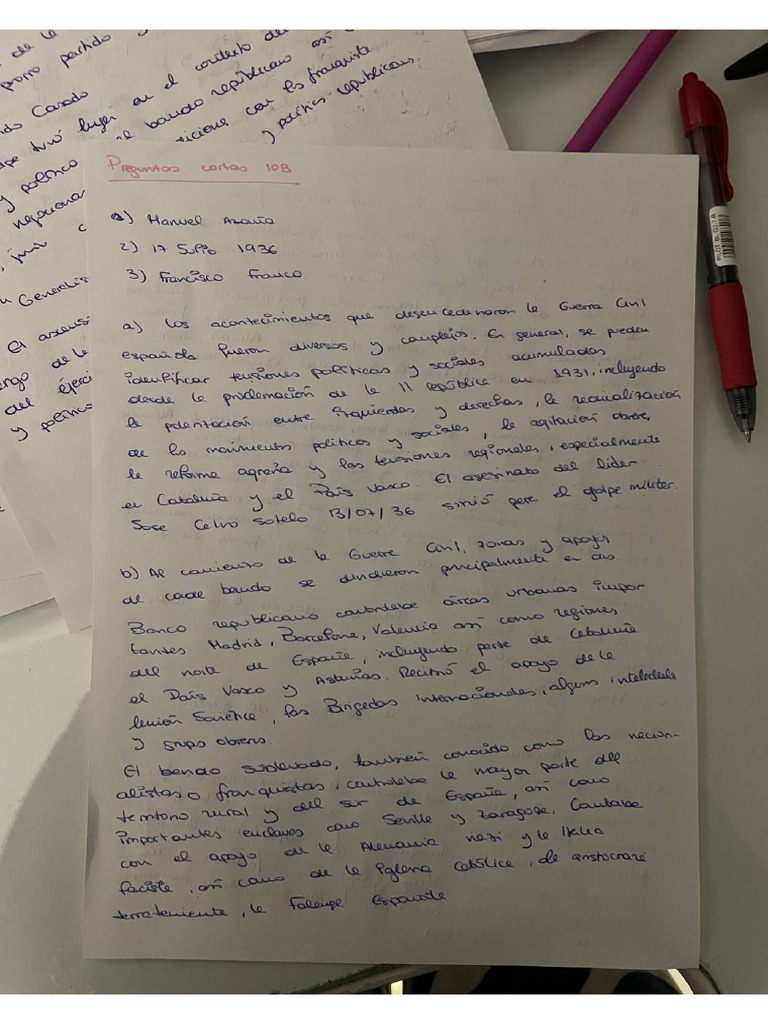 promo partido
en el contexto de
do Casado
lpe tuvo lugar
bando republicano así
con los franquista
y político
y político republicano.
negociar
El ascens
del éjerc
y político
PILOT BL-G2-7
Preguntas cortas 10B
1) Manuel Azaña
2) 17 Julio 1936
3) Francisco Franco
a) Los acontecimientos que desencadenaron la Guerra Civil
española fueron diversos y complejos. En general, se pueden
identificar tensiones políticas y sociales acumuladas
desde la proclamación de la II república en 1931, incluyendo
la polarización entre izquierdas y derechas, la radicalización
de los movimientos políticos y sociales, la agitación obrera,
la reforma agraria y las tensiones regionales, especialmente
en Cataluña y el País Vasco. El asesinato del líder
Jose Calvo Sotelo 13/07/36 sirvió para el golpe militar.
b) Al comienzo de la Guerra Civil, zonas y apoyos
de cada bando se dividieron principalmente en dos
Banco republicano controlaba áreas urbanas impor
tantes Madrid, Barcelona, Valencia así como regiones
del norte de España, incluyendo parte de Cataluña
el País Vasco y Asturias. Recibió el apoyo de la
Unión Soviética, las Brigadas Internacionales, algunos intelectuales
y grupos obreros.
El bando sublevado, también conocido como los nacion-
alistas o franquistas, controlaba la mayor parte del
territorio rural y del sur de España, así como
importantes enclaves como Sevilla y Zaragoza. Contaba
con el apoyo de la Alemania nazi y la Italia
facista, así como de la iglesia católica, la aristocracia
terrateniente, la Falange Española